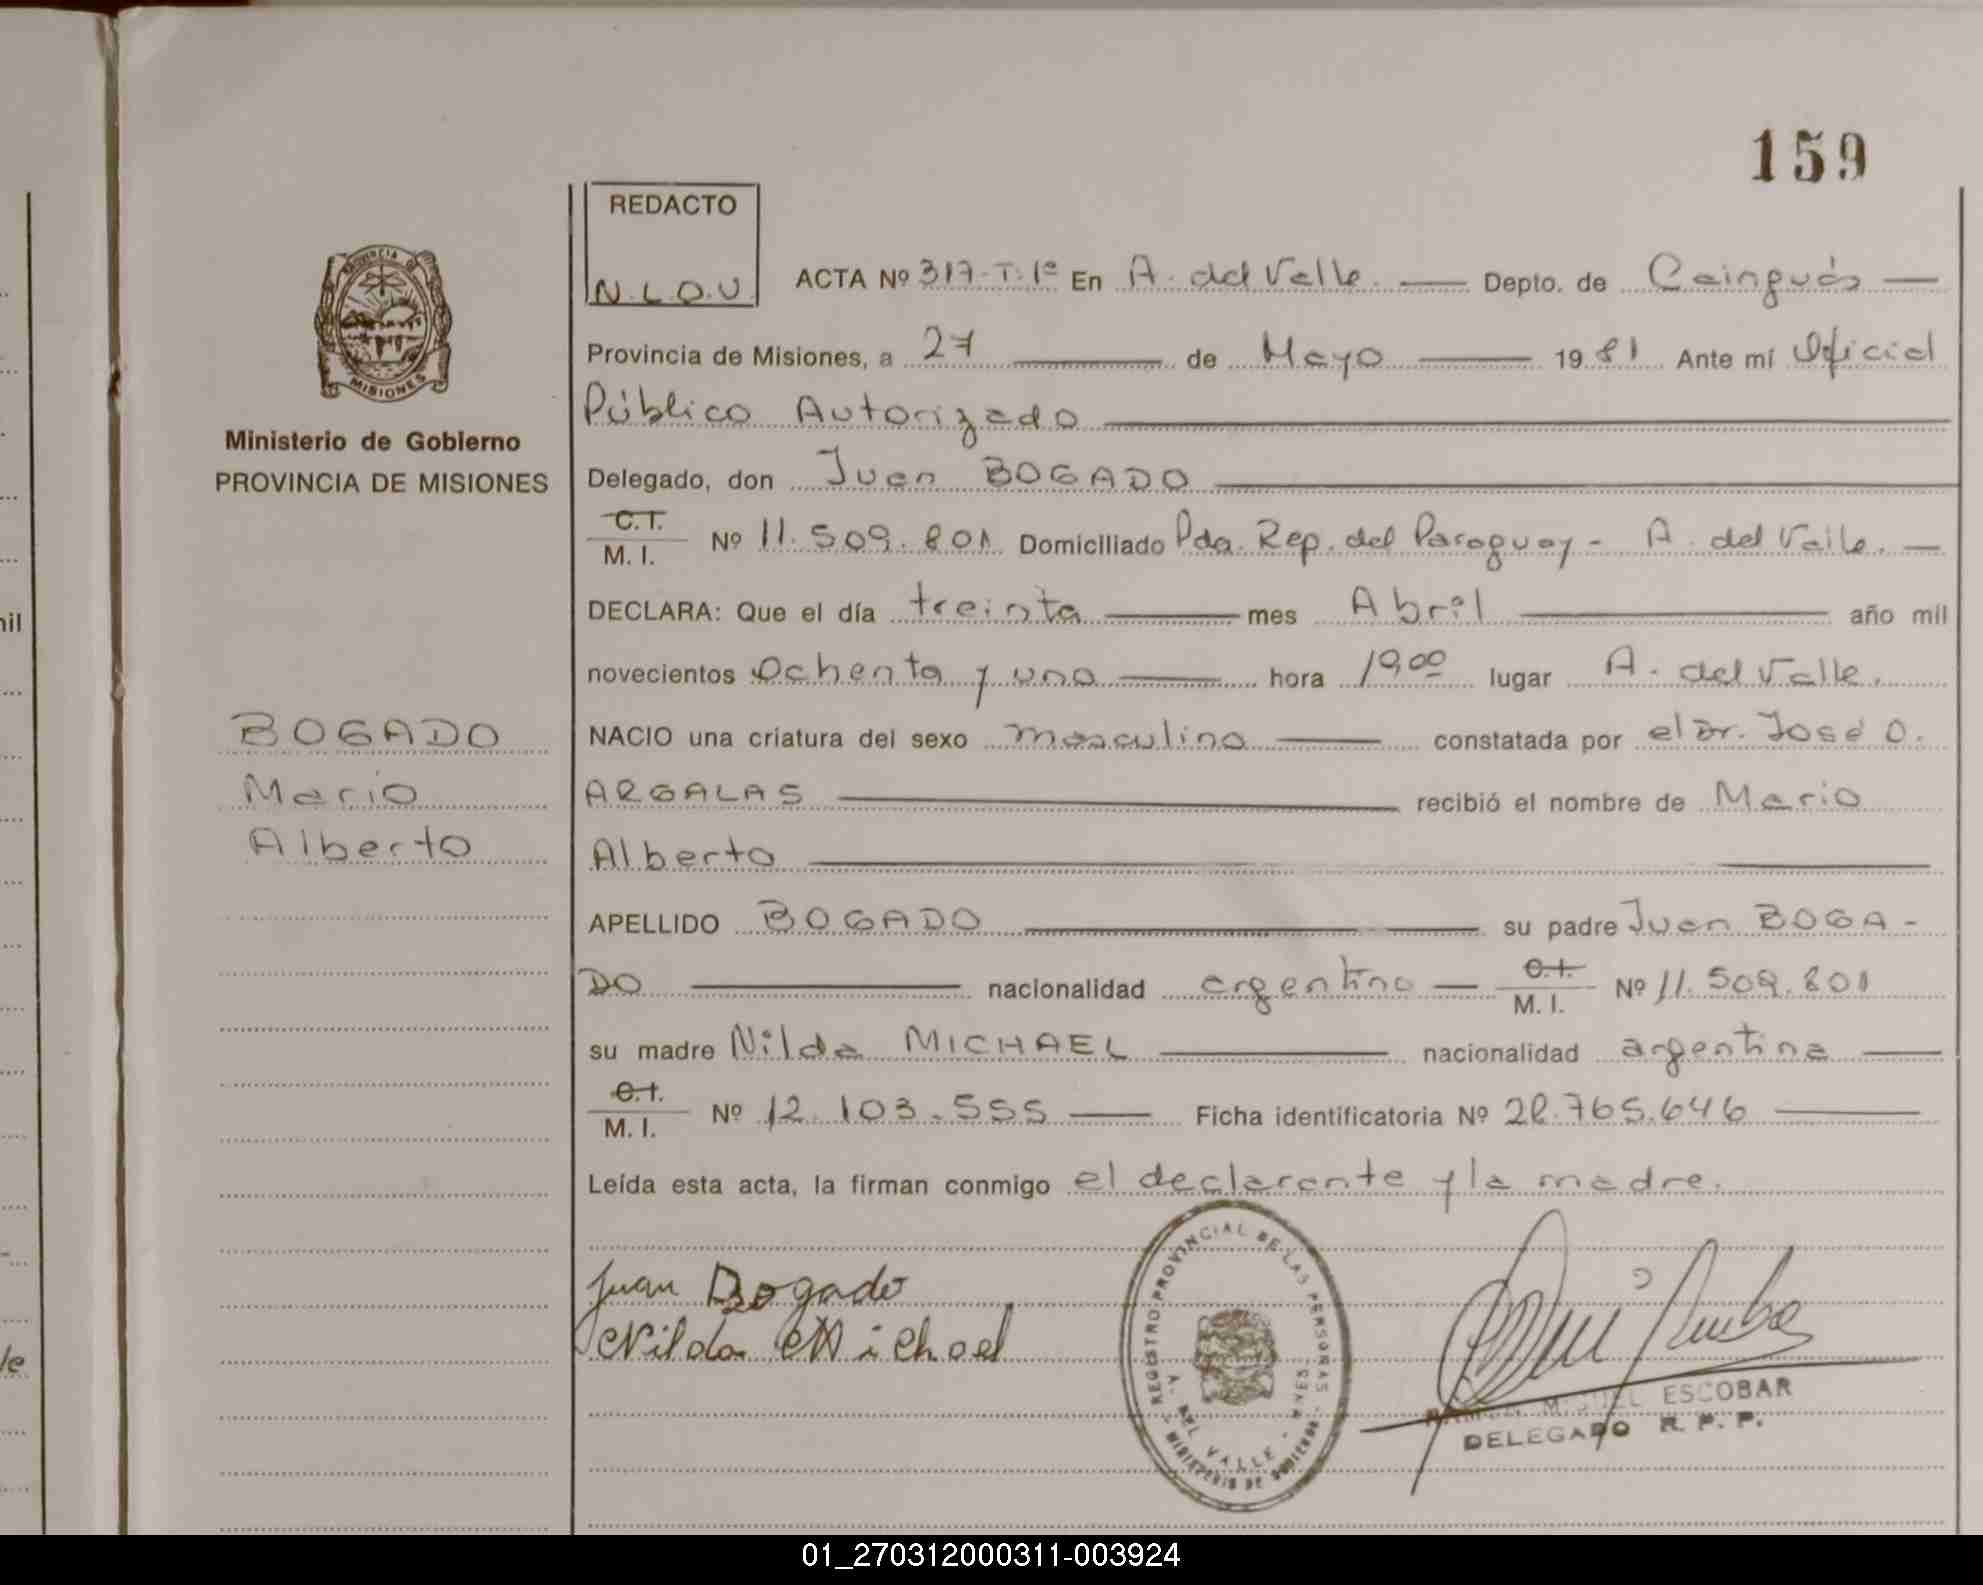 159
REDACTO
N.L.O.U.
ACTA Nº 317-T.1º En A. del Valle. Depto. de Cainguás
Provincia de Misiones, a 27 de Mayo 1981 Ante mí Oficial
Público Autorizado
Ministerio de Gobierno
PROVINCIA DE MISIONES
Delegado, don Juan BOGADO
C.I.
M. I. Nº 11.509.801 Domiciliado Pda. Rep. del Paraguay - A. del Valle.
DECLARA: Que el día treinta mes Abril año mil
novecientos Ochenta y uno hora 19,00 lugar A. del Valle.
NACIO una criatura del sexo masculino constatada por el Dr. José O.
ARGALAS recibió el nombre de Mario
Alberto
BOGADO
Mario
Alberto
APELLIDO BOGADO su padre Juan BOGA-
DO nacionalidad argentino C.I.
M. I. Nº 11.509.801
su madre Nilda MICHAEL nacionalidad argentina
C.I.
M. I. Nº 12.103.555 Ficha identificatoria Nº 28.765.646
Leída esta acta, la firman conmigo el declarante y la madre.
Juan Bogado
Nilda Michael
REGISTRO PROVINCIAL DE LAS PERSONAS
A. DEL VALLE
MINISTERIO DE GOBIERNO
MIGUEL ESCOBAR
DELEGADO R. P. P.
nil
le
01_270312000311-003924